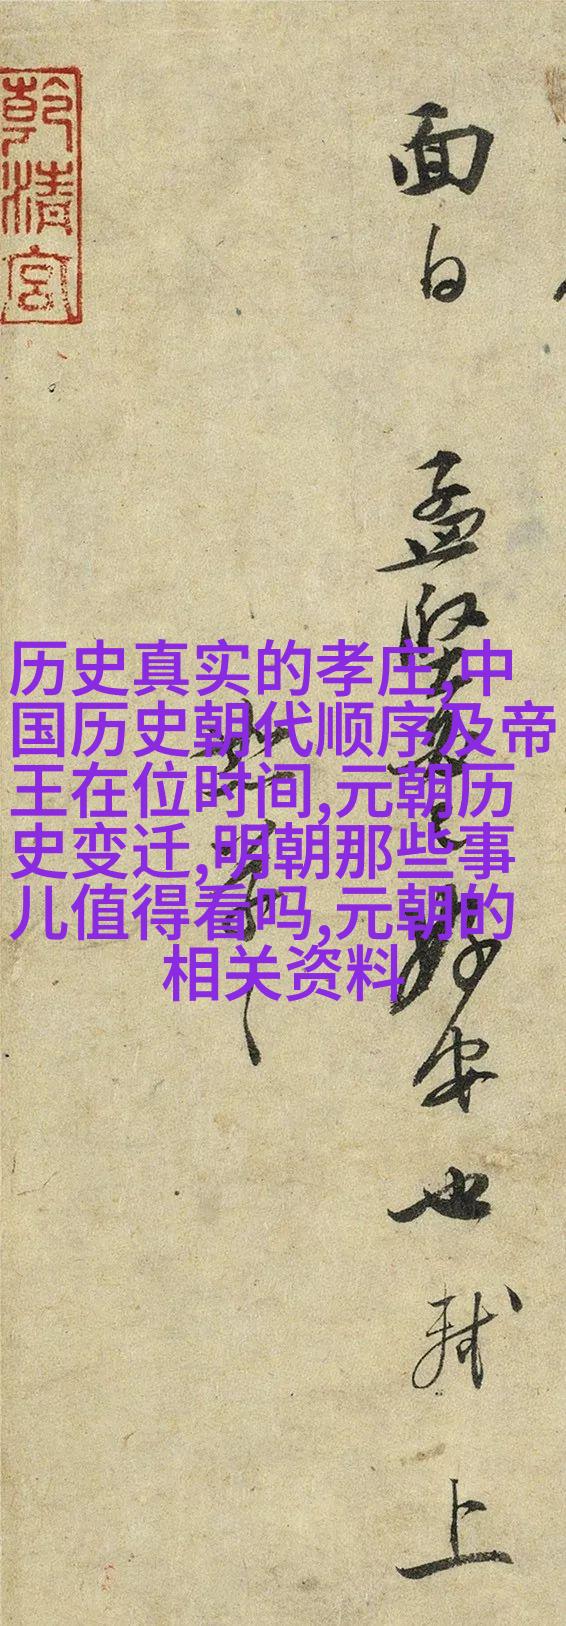 历史真实的孝庄,中
国历史朝代顺序及帝
王在位时间,元朝历
史变迁,明朝那些事
儿值得看吗,元朝的
相关资料
面白 孟堅 安也 軾 上
乾清宮